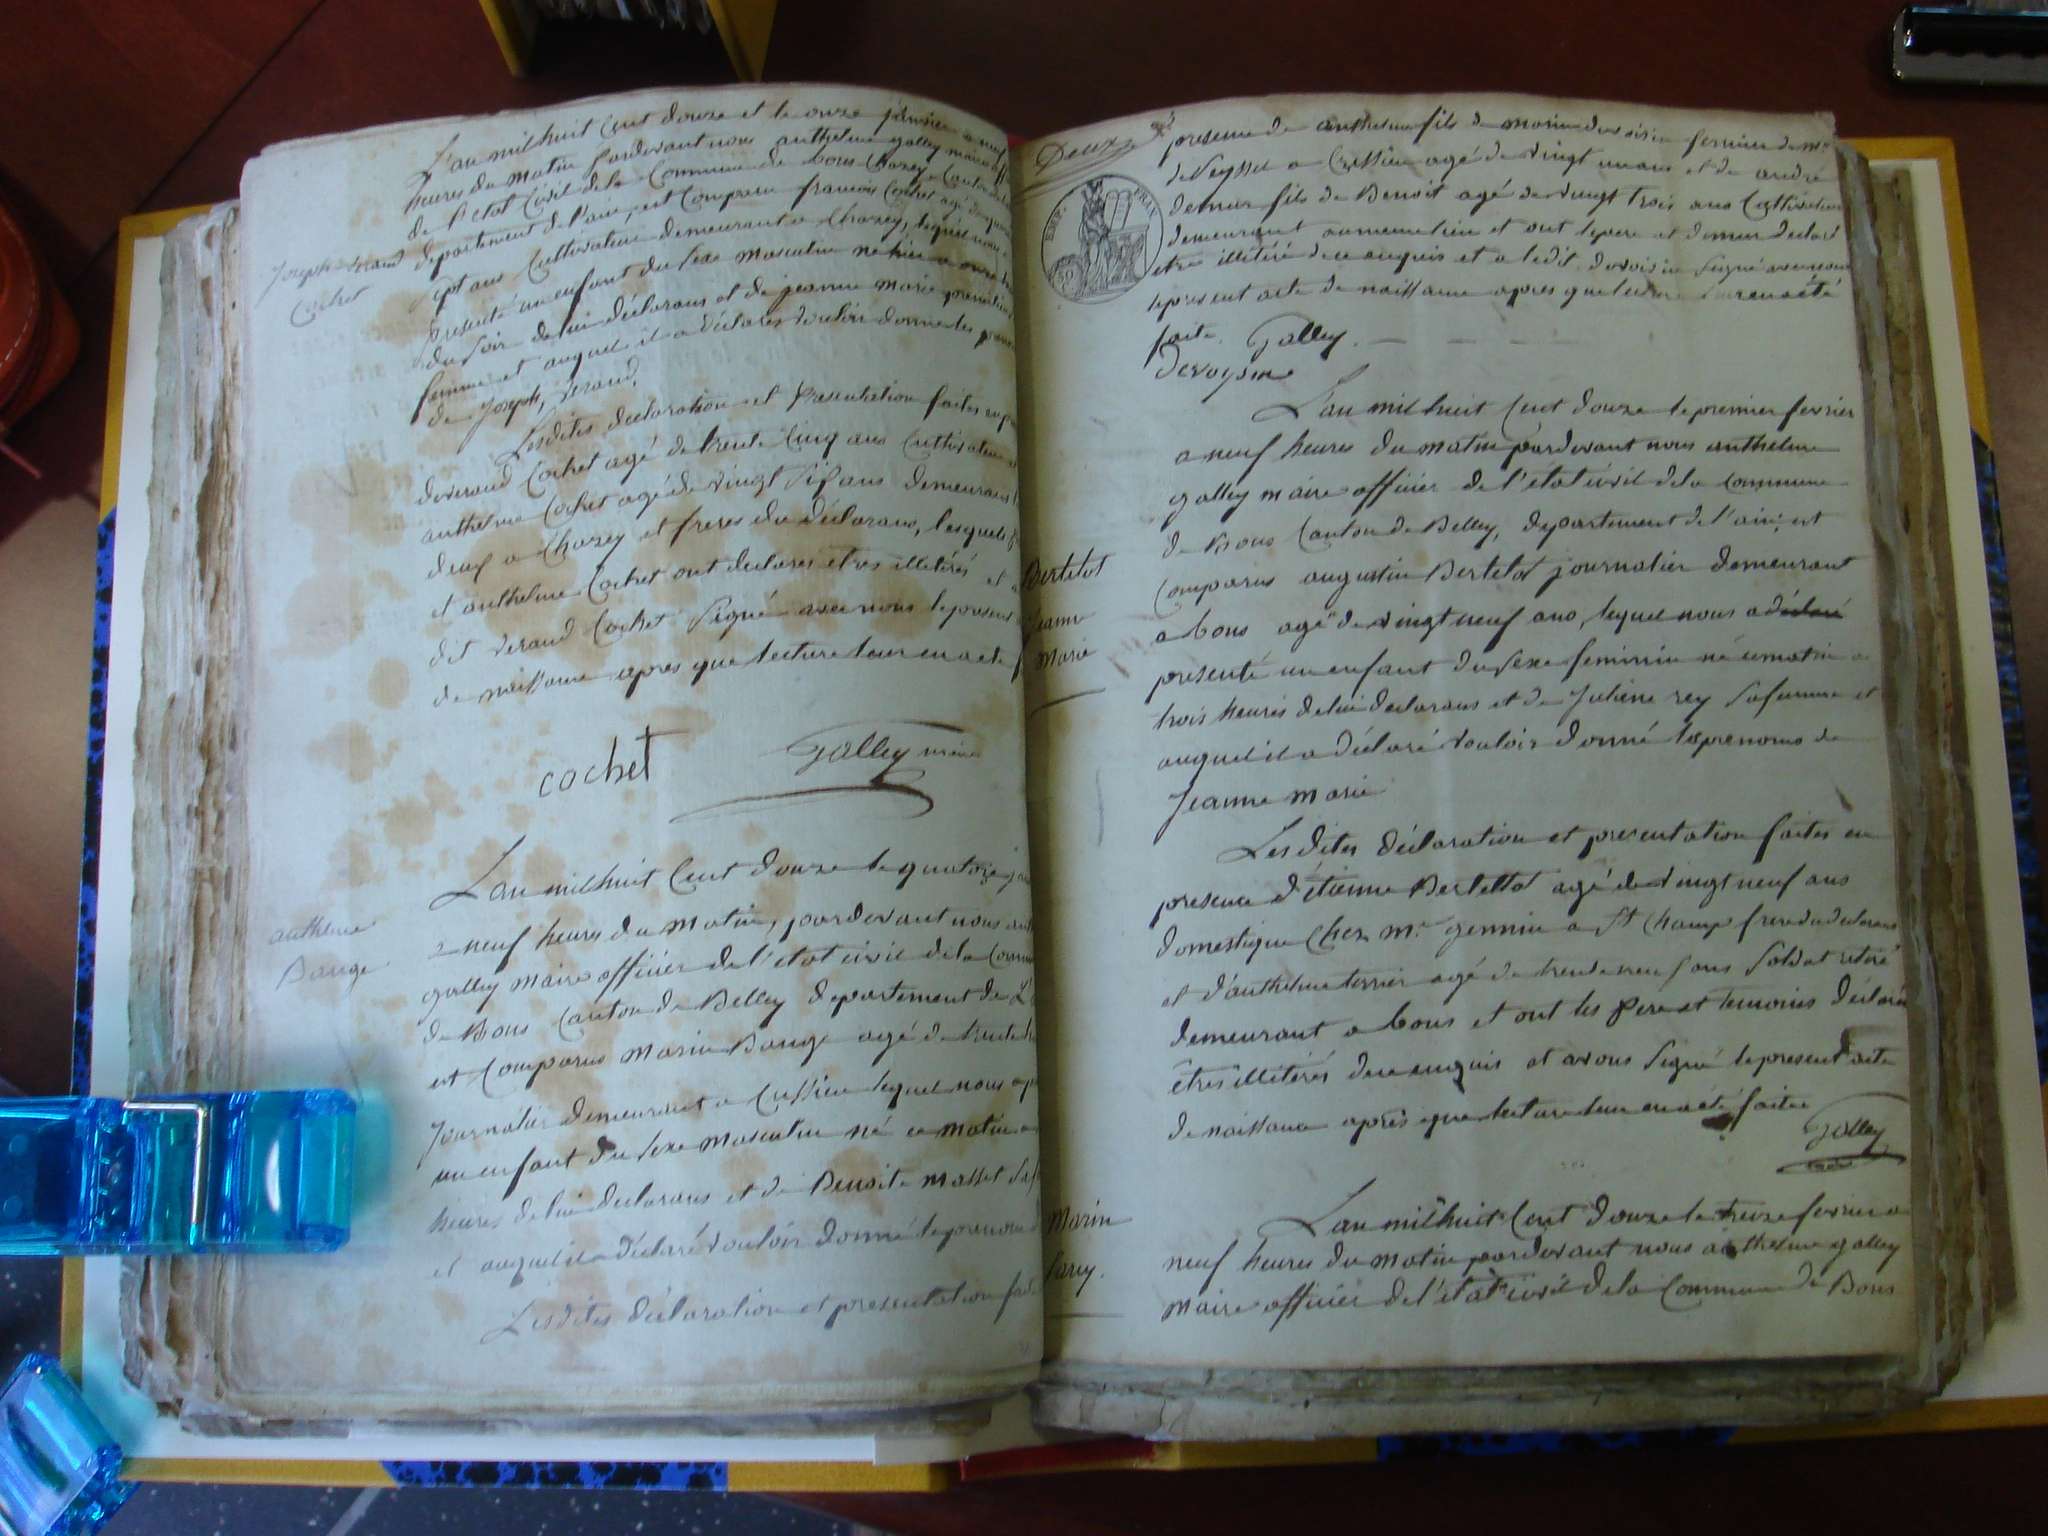 L'an mil huit Cent douze et le onze janvier a neuf
heures du matin pardevant nous anthelme galley maire off
de l'Etat Civil de la Commune de bons Chazey Canton de
Joseph Verand
Cochet
departement de l'ain, est Comparu francois Cochet agé de
sept ans Cultivateur demeurant a Chazey, lequel nous a
presenté un enfant du sexe masculin né hier a onze
du soir de lui déclarans et de jeanne marie
femme et auquel il a déclaré vouloir donner les
de Joseph, Verand.
Lesdites declaration et Presentation faites en
de verand Cochet agé de trente Cinq ans Cultivateur
anthelme Cochet agé de vingt six ans demeurans
deux a Chazey et freres du déclarans, lesquels
et anthelme Cochet ont declarés etres illétérés et
dit Verand Cochet signé avec nous le present
de naissance apres que lecture leur en a été
cochet
Galley maire
anthelme
Bauge
L'an mil huit Cent douze le quatorze
a neuf heures du matin, pardevant nous
galley maire officier de l'état civil de la
de Bons Canton de Belley departement de
est Comparus Marin Bauge agé de
journalier demeurant a Cressieu lequel nous a
un enfant du sexe masculin né ce matin
heures de lui declarans et de Benoite masset
et auquel il a déclaré vouloir donné le prenom
Lesdites déclaration et presentation
Deux
presence de anthelme fils de marin devoisin fermier de Mr
de Seyssel a Cressieu agé de vingt un ans et de andré
demur fils de Benoit agé de vingt trois ans Cultivateur
demeurant au meme lieu et ont le pere et demur declaré
etre illétéré de ce enquis et a ledit devoisin signé avec nous
le present acte de naissance apres que lecture
faite. Galley.
Devoysin
Bertelot
Jeanne
Marie
L'an mil huit Cent douze le premier fevrier
a neuf heures du matin pardevant nous anthelme
galley maire officier de l'état civil de la Commune
de Bons Canton de Belley, departement de l'ain, est
Comparus augustin Bertelot journalier demeurant
a bons agé de vingt neuf ans, lequel nous a déclaré
presenté un enfant du sexe feminin né ce matin a
trois heures de lui declarans et de Juliene rey sa femme et
auquel il a déclaré vouloir donné les prenoms de
Jeanne Marie
Lesdites déclaration et presentation faites en
presence d'étienne Bertellot agé de vingt neuf ans
domestique Chez Mr. jennin a St Champ frere du declarans
et d'anthelme terrier agé de trente neuf ans Soldat retiré
demeurant a bons et ont les pere et temoins déclarés
êtres illitérés de ce enquis et avons signé le present acte
de naissance après que lecture leur en a été faite
Galley
Marin
L'an mil huit Cent douze le treize fevrier a
neuf heures du matin pardevant nous anthelme galley
maire officier de l'état civil de la Commune de Bons